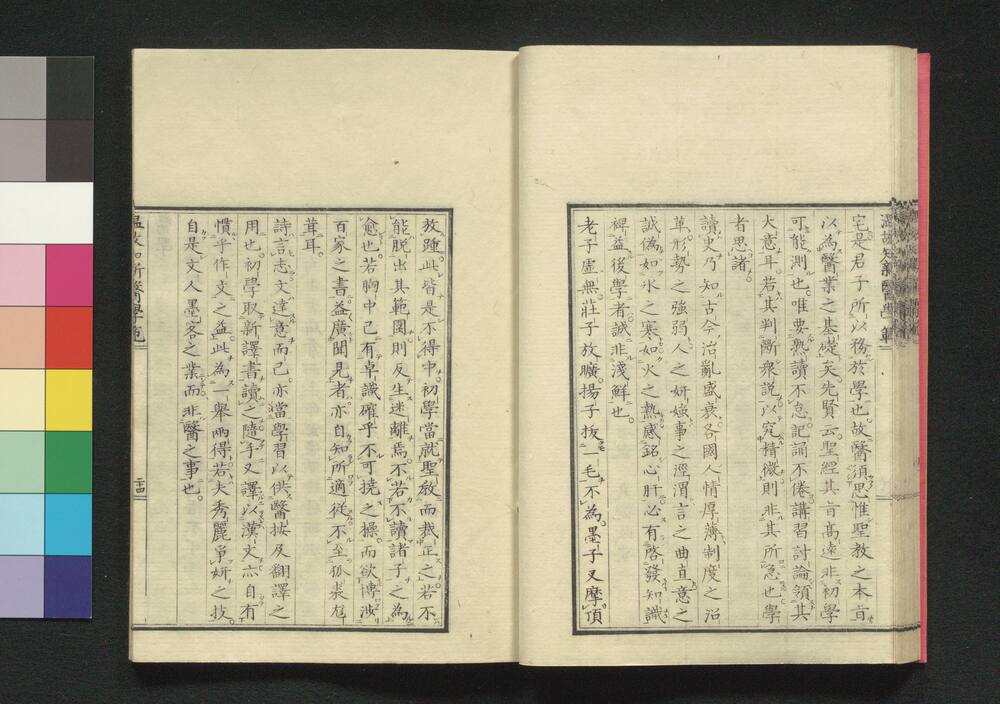 宅是君子所以務於學也故醫須思惟聖教之本旨
以為醫業之基礎矣先賢云聖經其旨高遠非初學
可能測也唯要熟讀不怠記誦不倦講習討論領其
大意耳若其判斷衆説以究情微則非其所急也學
者思諸
讀史乃知古今治亂盛衰各國人情厚薄制度之沿
革形勢之強弱人之妍媸事之涇渭言之曲直意之
誠偽如水之寒如火之熱感銘心肝心有啓發知識
裨益後學者誠非淺鮮也
老子虛無莊子放曠揚子拔一毛不為墨子又摩頂
放踵此皆是不得中初學當就聖教而裁正之若不
能脱出其範圍則反生迷離焉不若不讀諸子之為
愈也若胸中已有卓識確乎不可撓之操而欲博渉
百家之書益廣聞見者亦自知所適從不至狐裘尨
茸耳
詩言志文達意而已亦當學習以供醫按及翻譯之
用也初學取新譯書讀之隨手又譯以漢文亦自有
慣乎作文之益此為一舉兩得若夫秀麗爭妍之技
自是文人墨客之業而非醫之事也
溫故知新醫學範
二十四